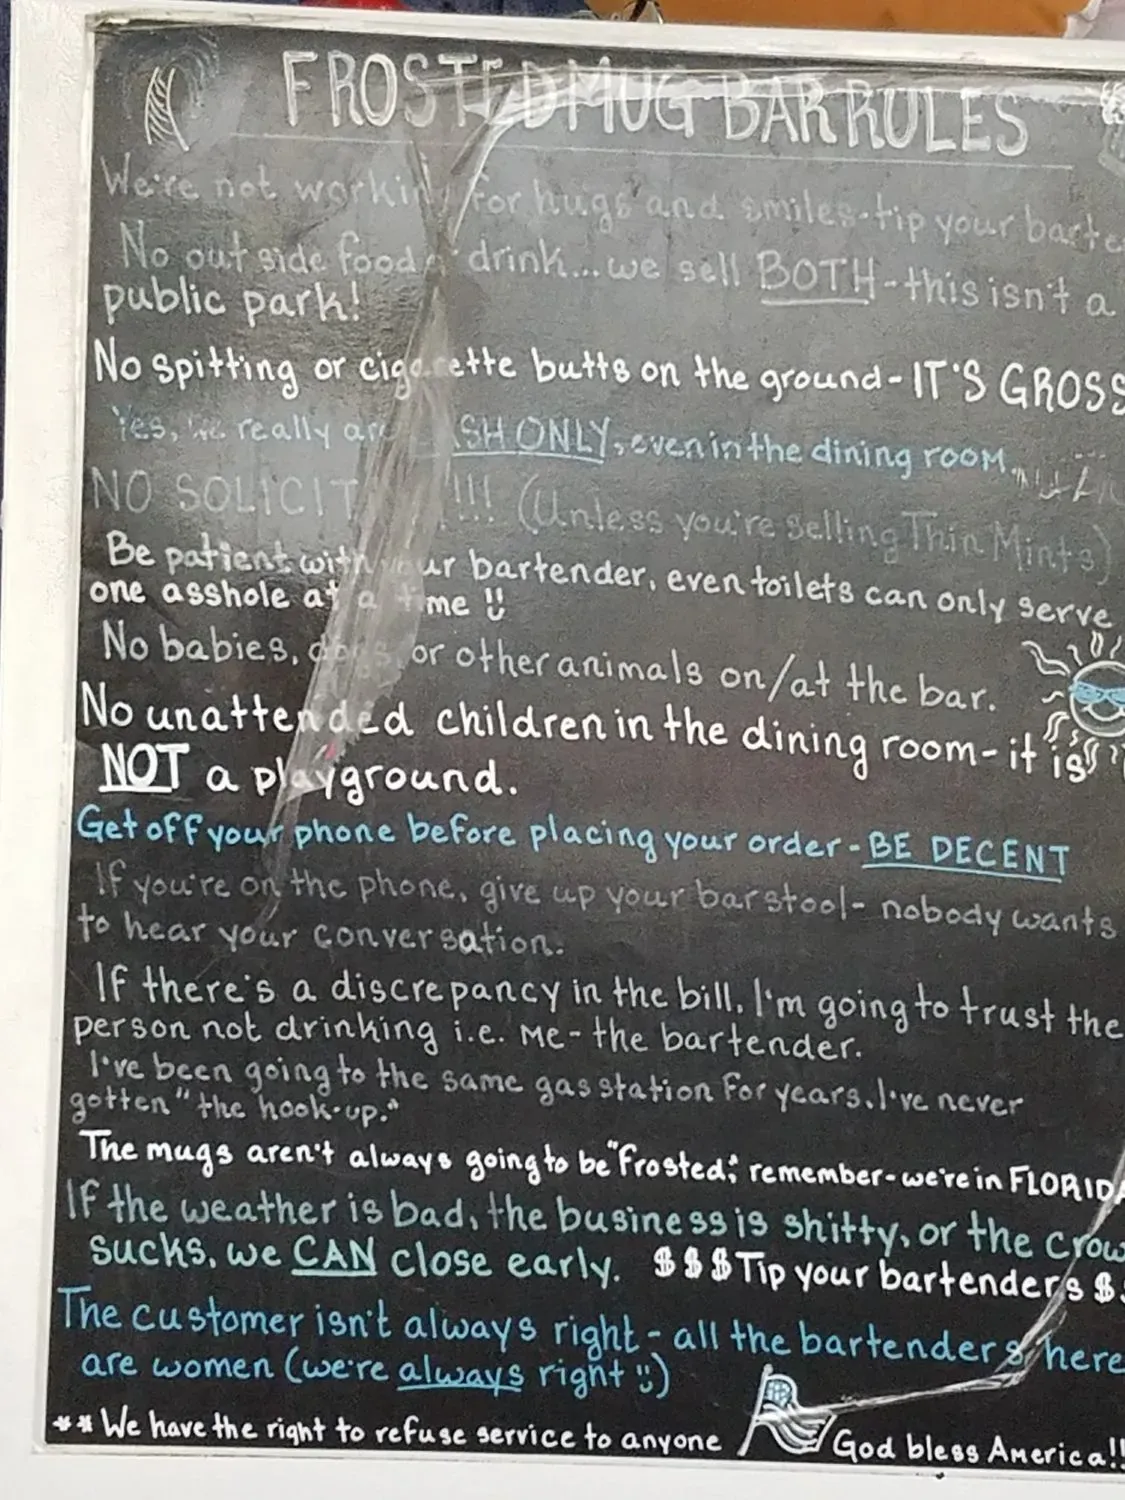 FROSTED MUG BAR RULES
We're not working for hugs and smiles-tip your barte
No outside food or drink...we sell BOTH-this isn't a
public park!
No spitting or cigarette butts on the ground-IT'S GROSS
Yes, we really are CASH ONLY, even in the dining room.
NO SOLICIT !!! (Unless you're selling Thin Mints)
Be patient with your bartender, even toilets can only serve
one asshole at a time !!
No babies, dogs, or other animals on/at the bar.
No unattended children in the dining room-it is
NOT a playground.
Get off your phone before placing your order-BE DECENT
If you're on the phone, give up your barstool- nobody wants
to hear your conversation.
If there's a discrepancy in the bill, I'm going to trust the
person not drinking i.e. ME-the bartender.
I've been going to the same gas station for years. I've never
gotten "the hook-up."
The mugs aren't always going to be "frosted"; remember-we're in FLORIDA
If the weather is bad, the business is shitty, or the crow
sucks, we CAN close early. $$$Tip your bartenders $
The customer isn't always right-all the bartenders here
are women (we're always right :))
**We have the right to refuse service to anyone God bless America!!